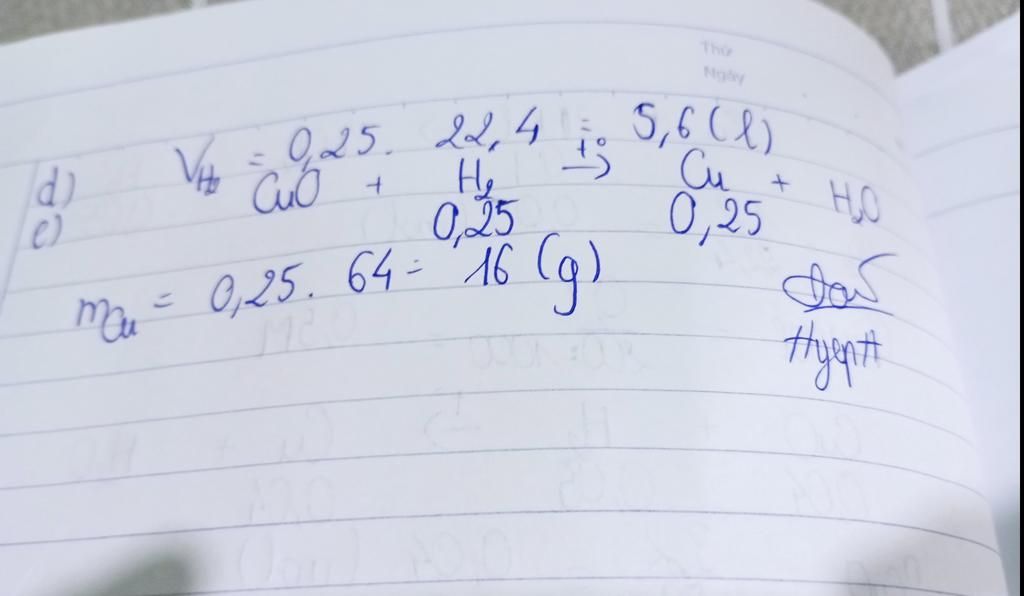 Thứ
Ngày
d) VH₂ = 0,25. 22,4 = 5,6 (l)
e) CuO + H₂ t° → Cu + H₂O
0,25 0,25
mCu = 0,25. 64 = 16 (g)